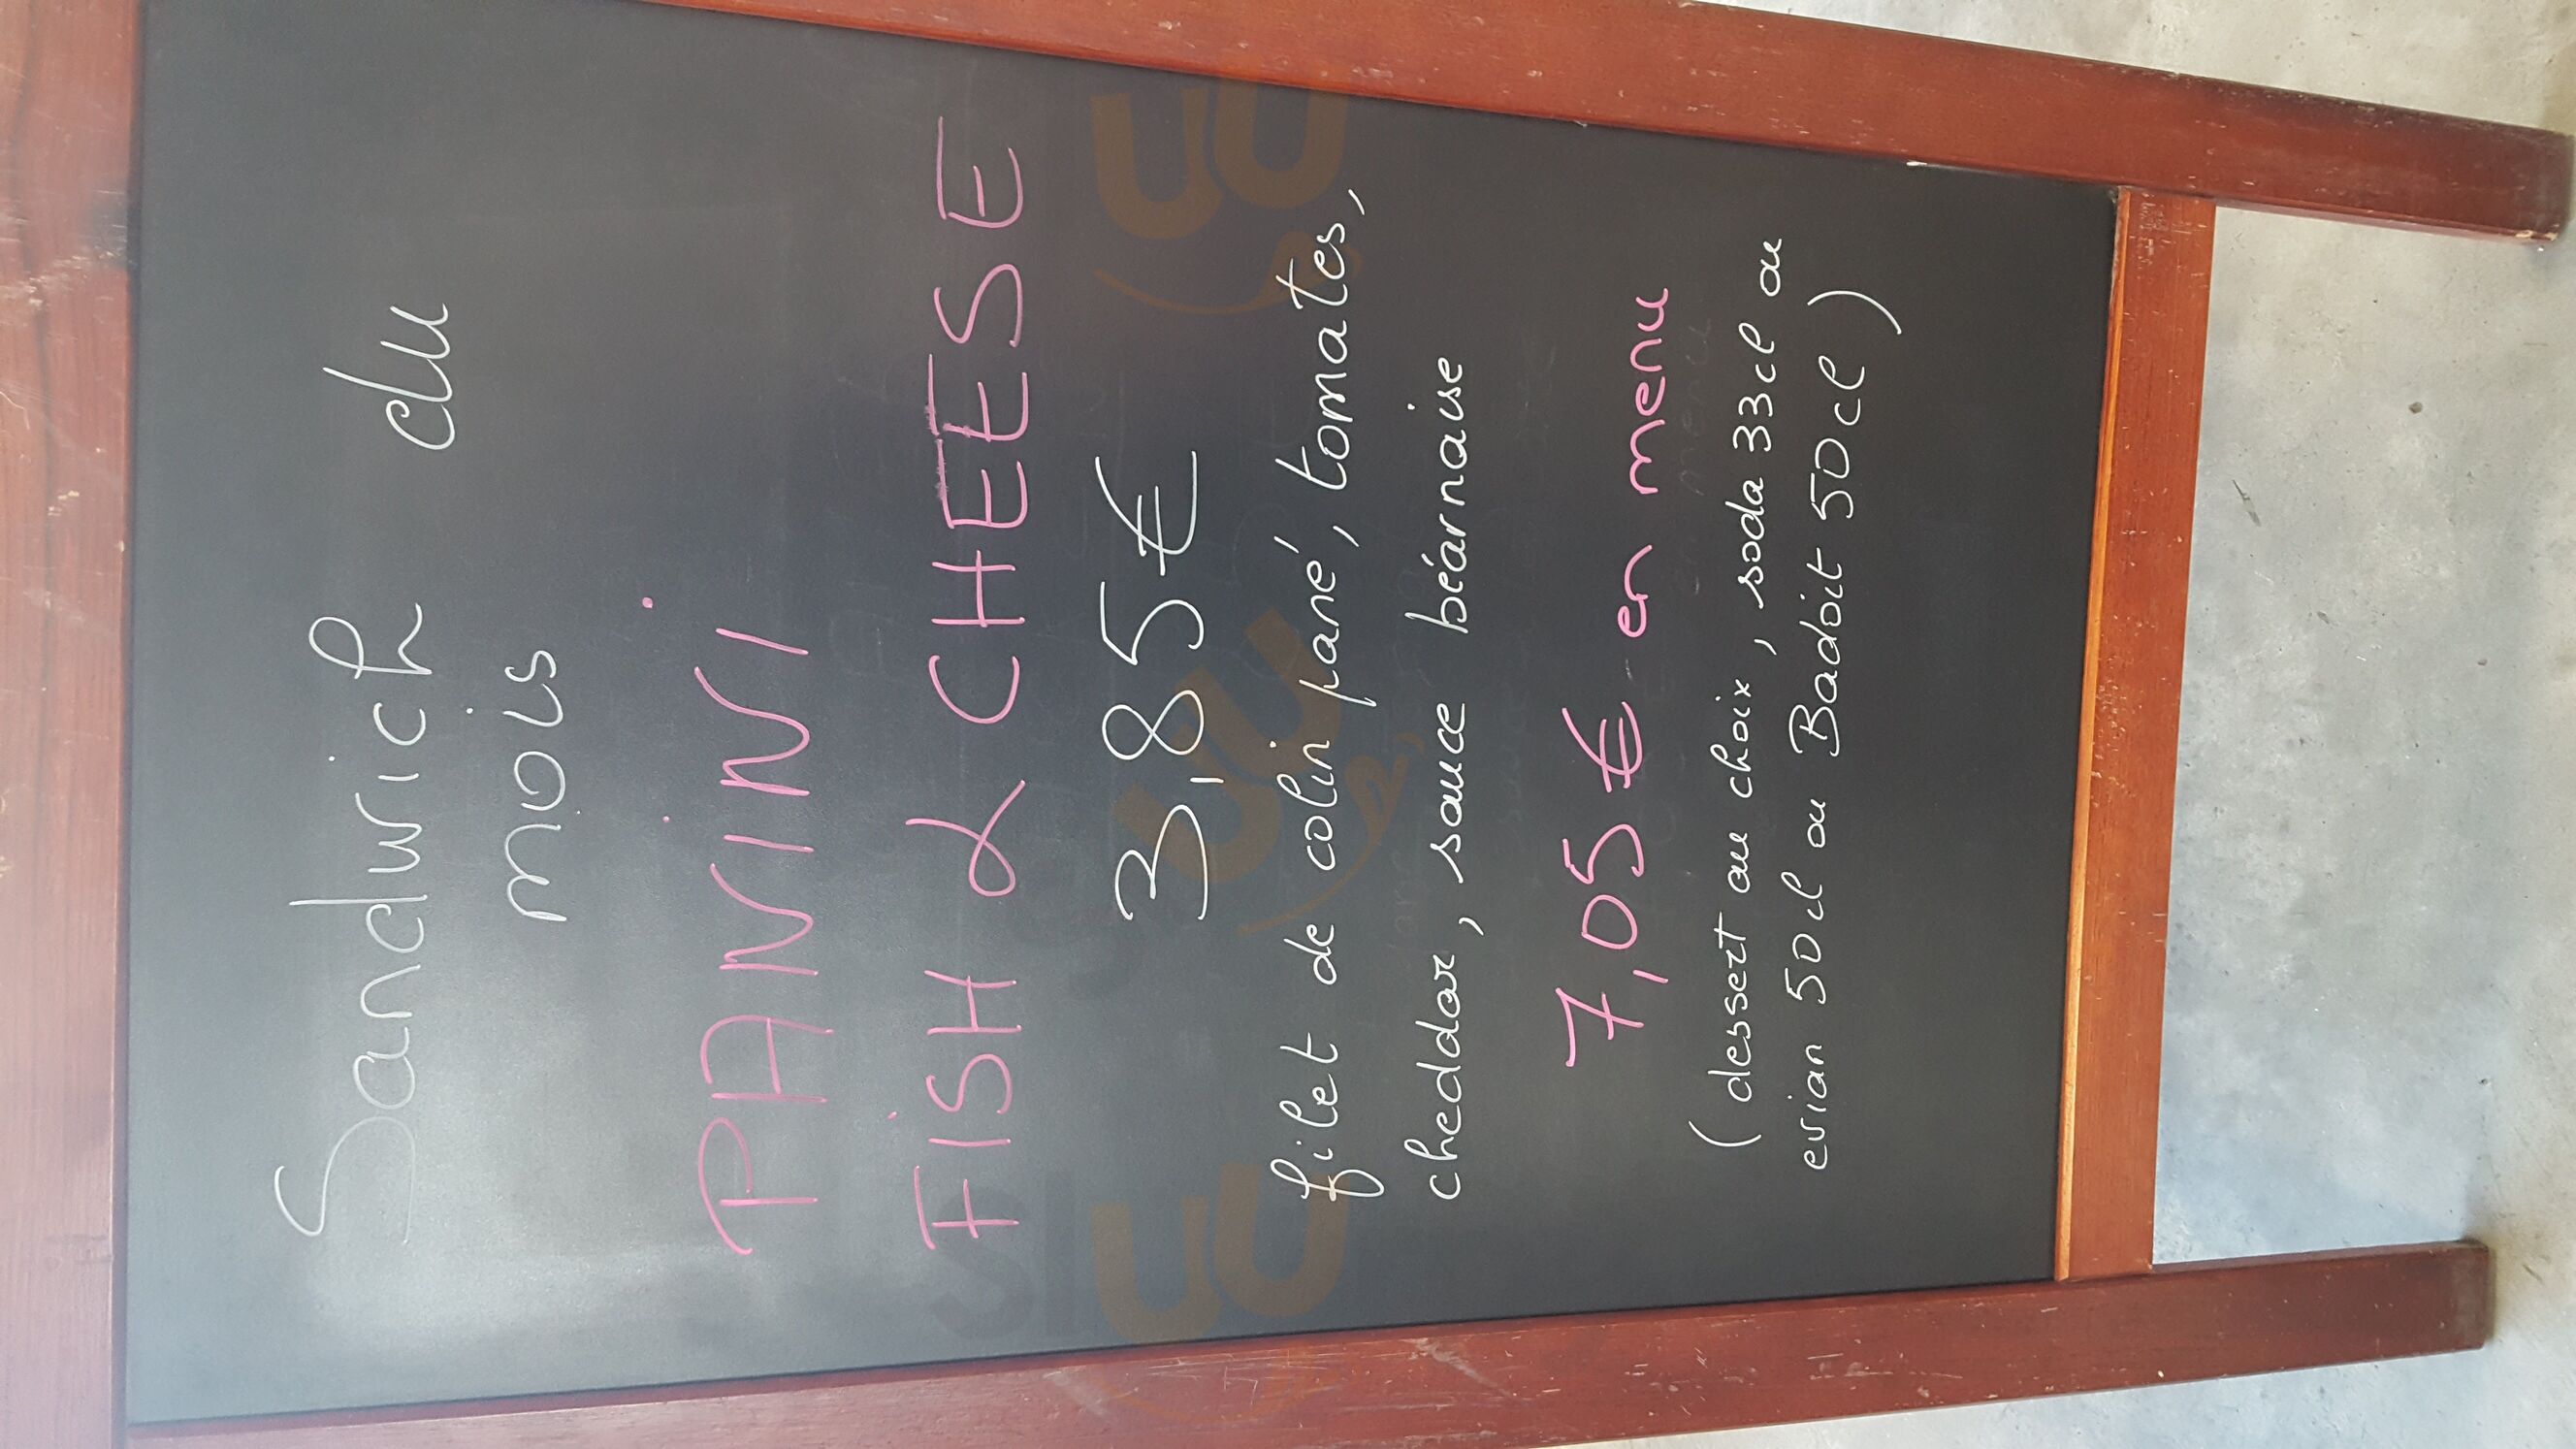 Sandwich du
mois
PANiNi
FiSH & CHEESE
3,85€
filet de colin pané, tomates,
cheddar, sauce béarnaise
7,05€ en menu
(dessert au choix, soda 33cl ou
evian 50cl ou Badoit 50cl)